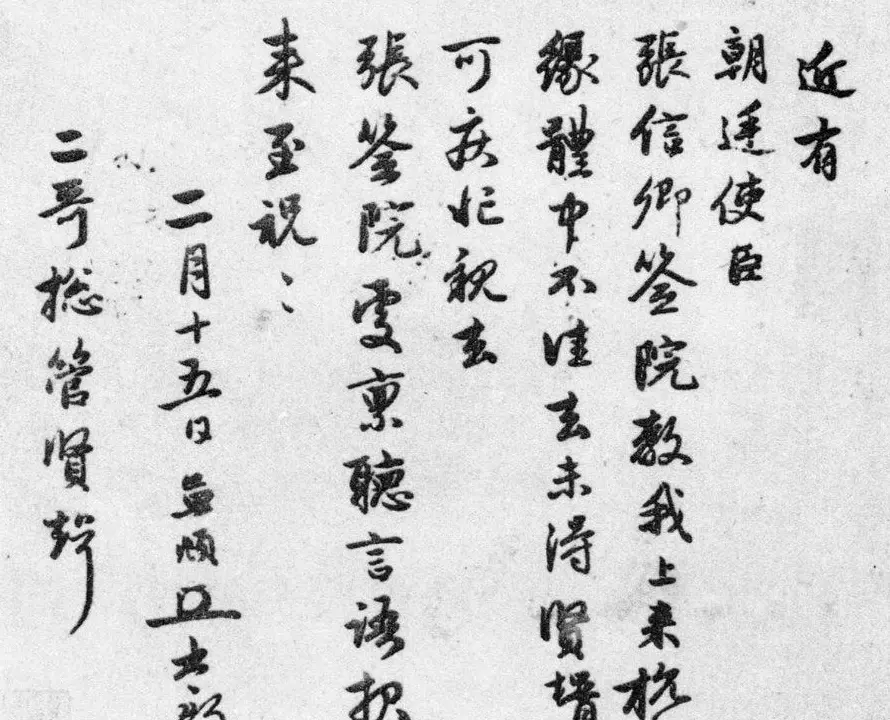 近有
朝廷使臣
張信卿簽院教我上来杭
緣體中不佳去未得賢壻
可疾忙親去
張簽院處稟聽言語
来至祝〻
二月十五日孟頫
二哥揔管賢壻